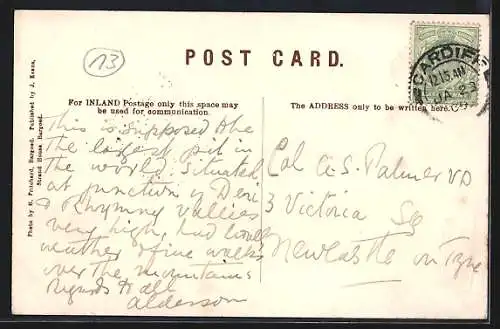 13
POST CARD.
CARDIFF
12.15 AM
JA 23
For INLAND Postage only this space may
be used for communication.
The ADDRESS only to be written here.
Photo by R. Pritchard, Bargoed. Published by J. Keane,
Strand House, Bargoed.
This is supposed to be
the largest pit in
the world. Situated
at junction of Deri
& Rhymny Vallies
very high, had lovely
weather & fine walks
over the mountains
Regards to all
Alderson
Col A.S. Palmer VD
3 Victoria Sq
Newcastle on Tyne